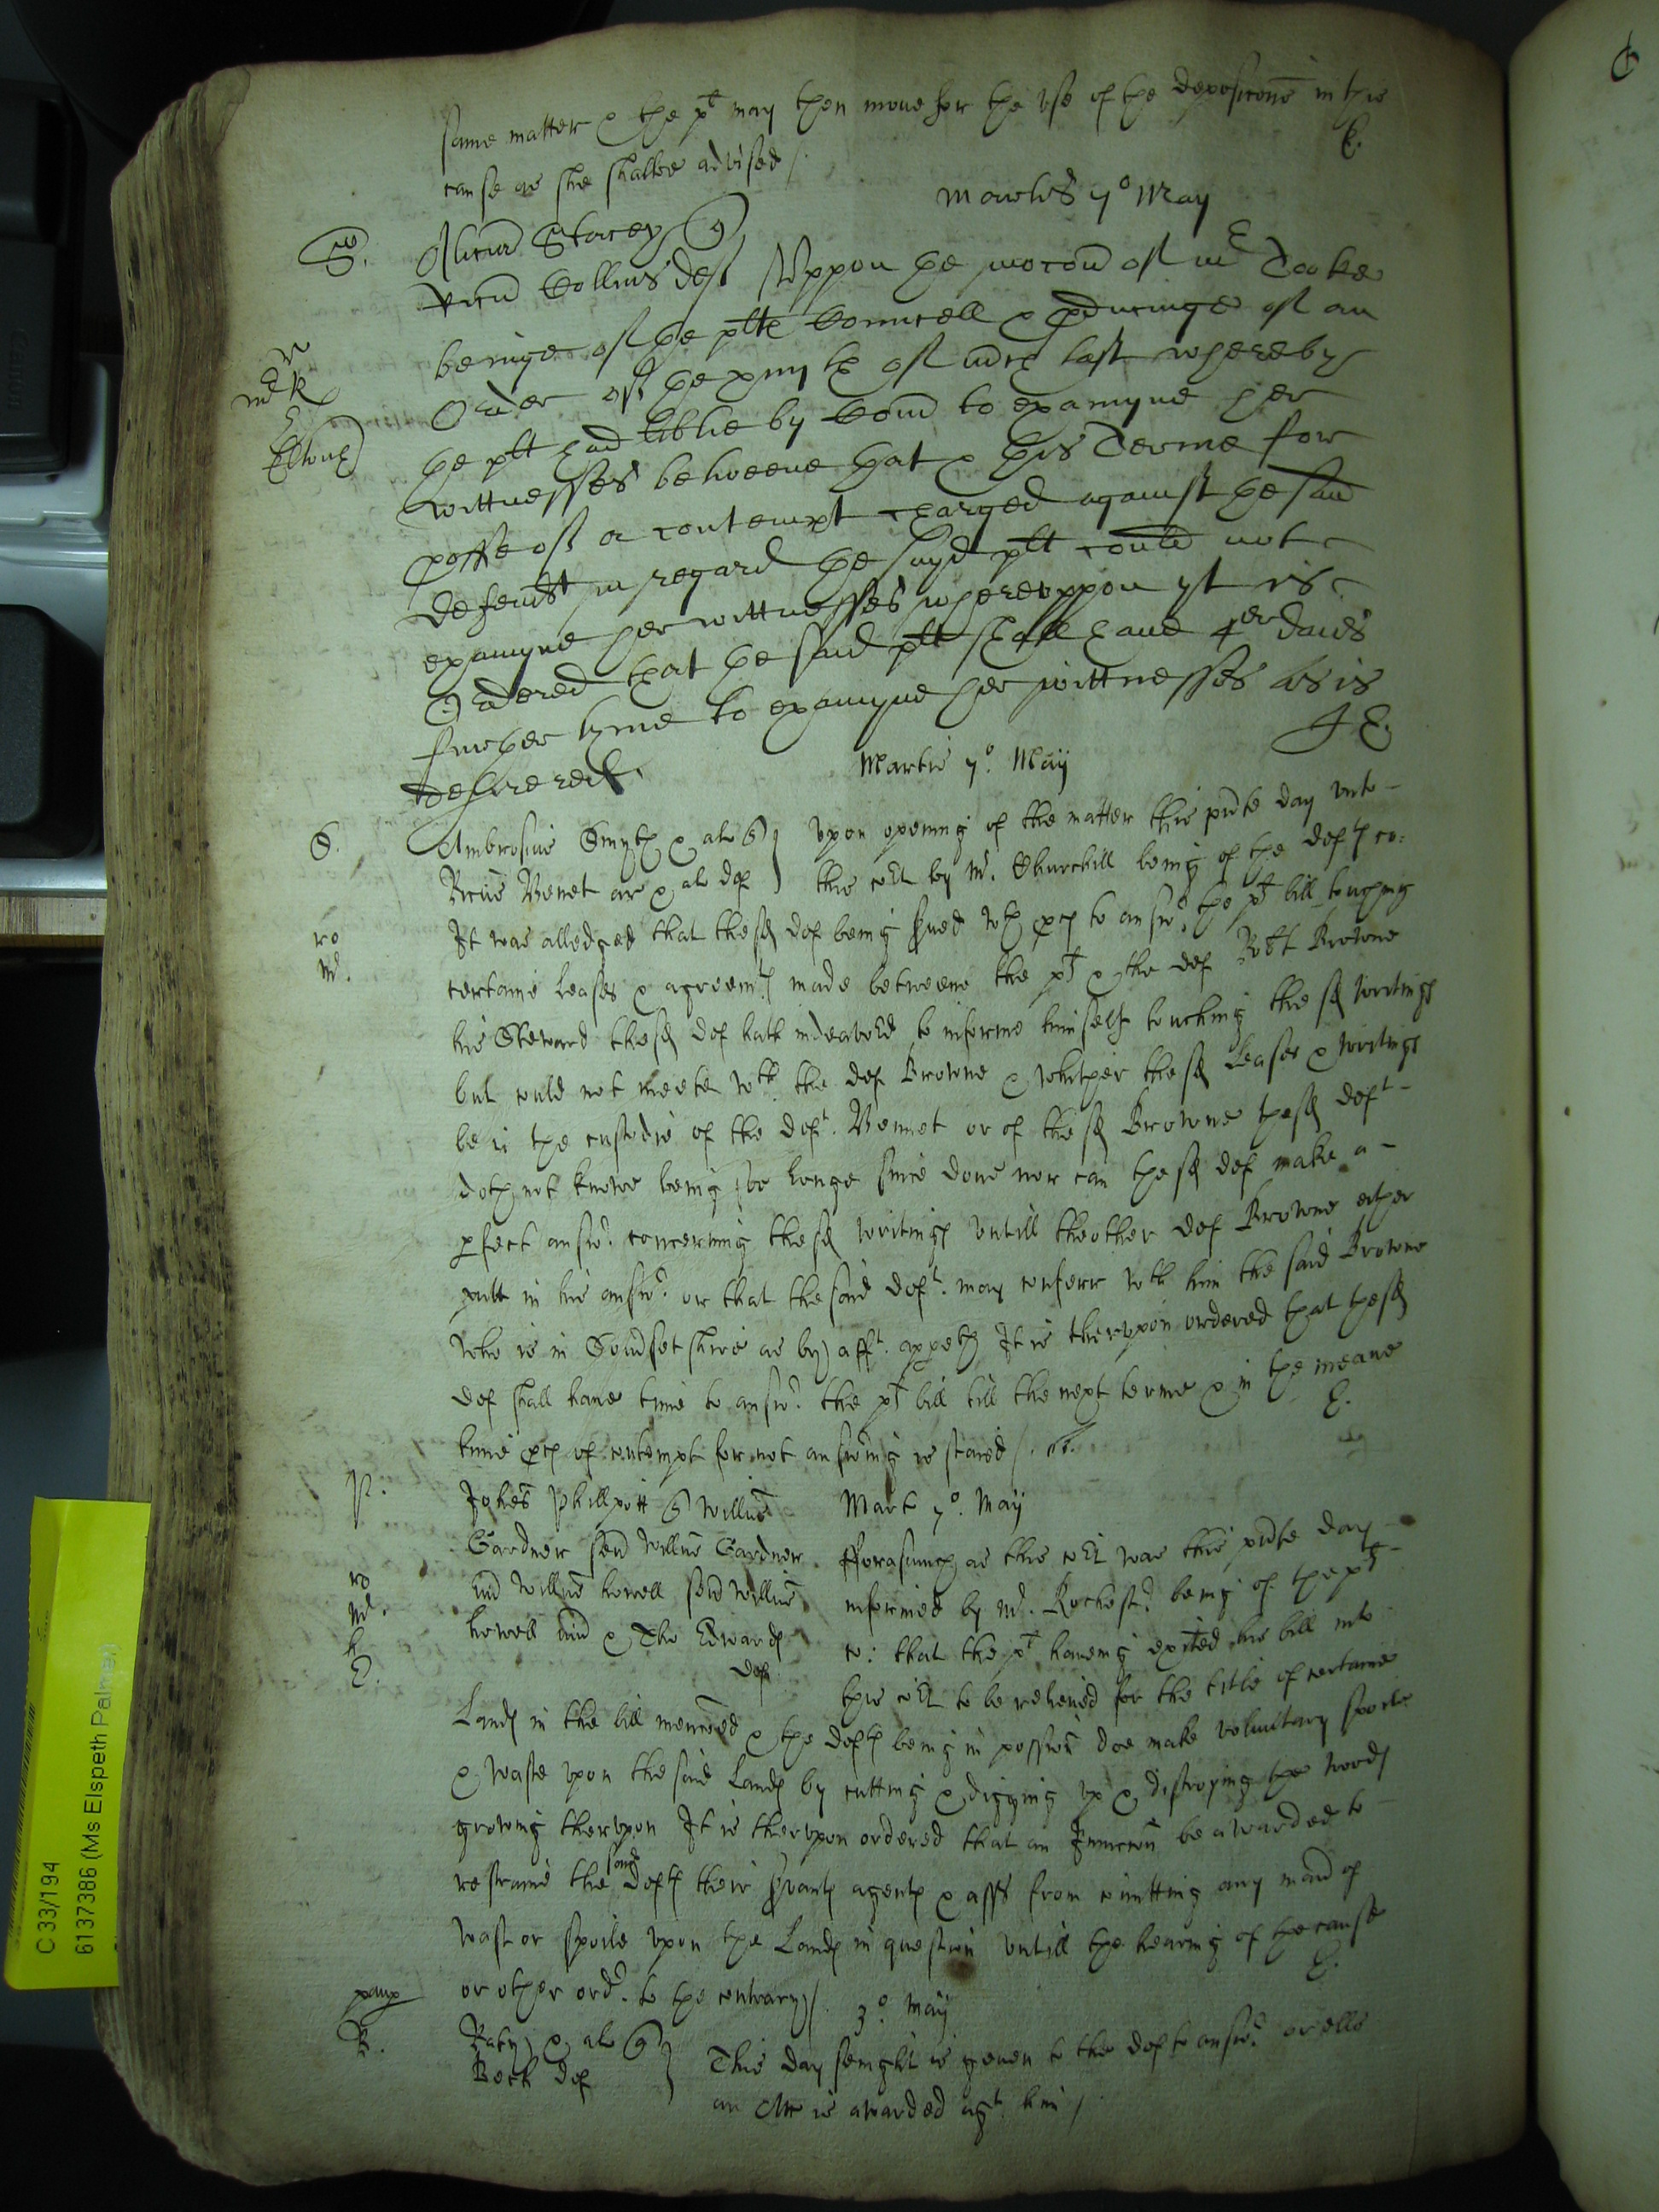 same matter & the plt may then move for the use of the deposicons in this
cause as she shalbe advised /.
E.
Martis 7o May
S.
Alicia Stacey q
Ricus Collins def Uppon the mocon of mr Tooke
beinge of the plts Councell & producinge of an
Order of the of last whereby
the plt had libtie by Com to examyne her
wittnesses betweene that & this Terme for
of a contempt charged against the said
defendt in regard the sayd plt could not
examyne her wittnesses whereuppon yt is
Ordered that the said plt shall have 4er daies
further tyme to examyne her wittnesses as is
desired
J E.
Martis 7o. Maij
S.
Ambrosius Smyth & al q } upon opening of the matter this pnte day unto
Ricus Benet ar & al def } this cort by Mr. Churchill being of the defts co:
It was alledged that the sd def being sued wth pces to answr. the plts bill touching
ro
Mr.
certaine Leases & agreemts made betweene the plt & the def Robt Browne
his Steward the sd def hath indeavored to informe himself touching the sd writings
but could not meete wth. the def Browne & whither the sd Leases & writings
be in the custodie of the deft. Bennet or of the sd Browne the sd deft
doth not knowe being soe longe since done nor can the sd def make a
pfect answr. concerning the sd writings untill thother def Browne either
putt in his answr. or that the said deft. may conferr wth him the said Browne
who is in Somsetshire as by afft. appeth It is therupon ordered that the sd
def shall have time to answr. the plts bill till the next terme & in the meane
time pces of contempt for not answring is staied /.
E.
P.
Johes Phillpott q Willus
Gardner senr Willus Gardner
iun Willus howell senr Willus
howell iun & Tho Edwards
def
Mart 7o. Maij
fforasmuch as this cort was this pnte day
informed by Mr. Rochestr. being of the plts
co: that the plt haveing exhited his bill into
this cort to be releived for the title of certaine
ro
Mr.
h
E.
Lands in the bill menconed & the defts being in possion doe make voluntary spoile
& waste upon the said Lands by cutting & digging up & distroying the woods
growing therupon It is therupon ordered that an Iniuncon be awarded to
restraine the said defts their servants agents & asss from comitting any mannr of
wast or spoile upon the Lands in question untill the hearing of the cause
or other ordr. to the contrary /.
E.
3o. Maij
R.
Raby & al q }
Beck def }
This day senight is geven to the def to answr. or ells
an Att is awarded agt. him /
C 33/194
6137386 (Ms Elspeth Palmer)